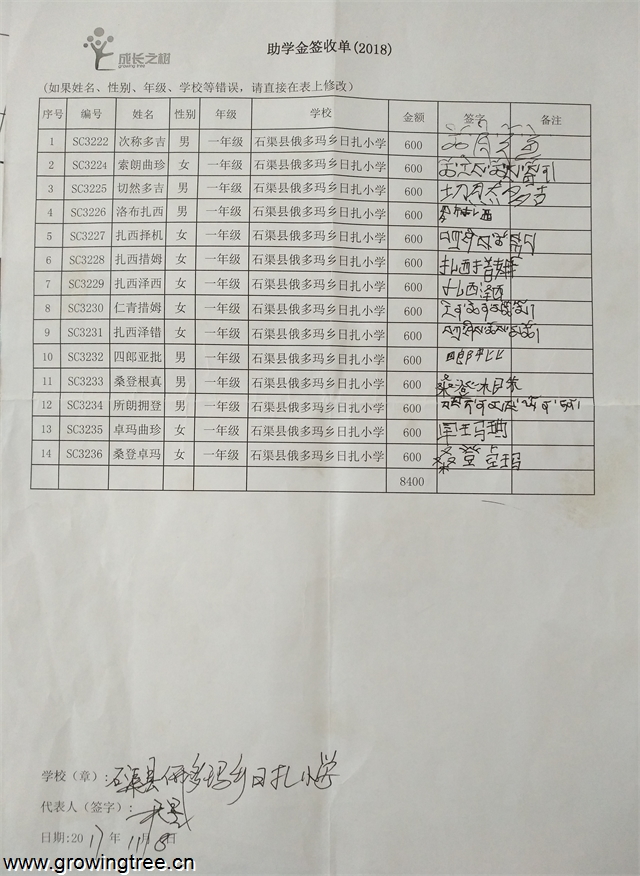 成长之树
growing tree
助学金签收单(2018)
(如果姓名、性别、年级、学校等错误，请直接在表上修改)
序号 编号 姓名 性别 年级 学校 金额 签字 备注
1 SC3222 次称多吉 男 一年级 石渠县俄多玛乡日扎小学 600
2 SC3224 索朗曲珍 女 一年级 石渠县俄多玛乡日扎小学 600
3 SC3225 切然多吉 男 一年级 石渠县俄多玛乡日扎小学 600 切然多吉
4 SC3226 洛布扎西 男 一年级 石渠县俄多玛乡日扎小学 600
5 SC3227 扎西择机 女 一年级 石渠县俄多玛乡日扎小学 600
6 SC3228 扎西措姆 女 一年级 石渠县俄多玛乡日扎小学 600 扎西措姆
7 SC3229 扎西泽西 女 一年级 石渠县俄多玛乡日扎小学 600 扎西泽西
8 SC3230 仁青措姆 女 一年级 石渠县俄多玛乡日扎小学 600
9 SC3231 扎西泽错 女 一年级 石渠县俄多玛乡日扎小学 600
10 SC3232 四郎亚批 男 一年级 石渠县俄多玛乡日扎小学 600
11 SC3233 桑登根真 男 一年级 石渠县俄多玛乡日扎小学 600
12 SC3234 所朗拥登 男 一年级 石渠县俄多玛乡日扎小学 600
13 SC3235 卓玛曲珍 女 一年级 石渠县俄多玛乡日扎小学 600
14 SC3236 桑登卓玛 女 一年级 石渠县俄多玛乡日扎小学 600 桑登卓玛
8400
学校（章）: 石渠县俄多玛乡日扎小学
代表人（签字）:
日期:2017年11月8日
www.growingtree.cn